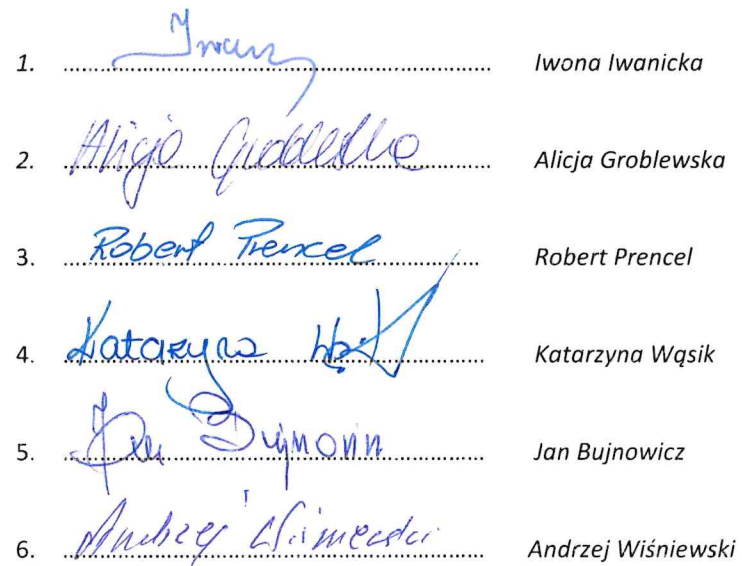 1. Iwona Iwanicka
2. Alicja Groblewska Alicja Groblewska
3. Robert Prencel Robert Prencel
4. Katarzyna Katarzyna Wąsik
5. Jan Jan Bujnowicz
6. Andrzej Wiśniewski Andrzej Wiśniewski